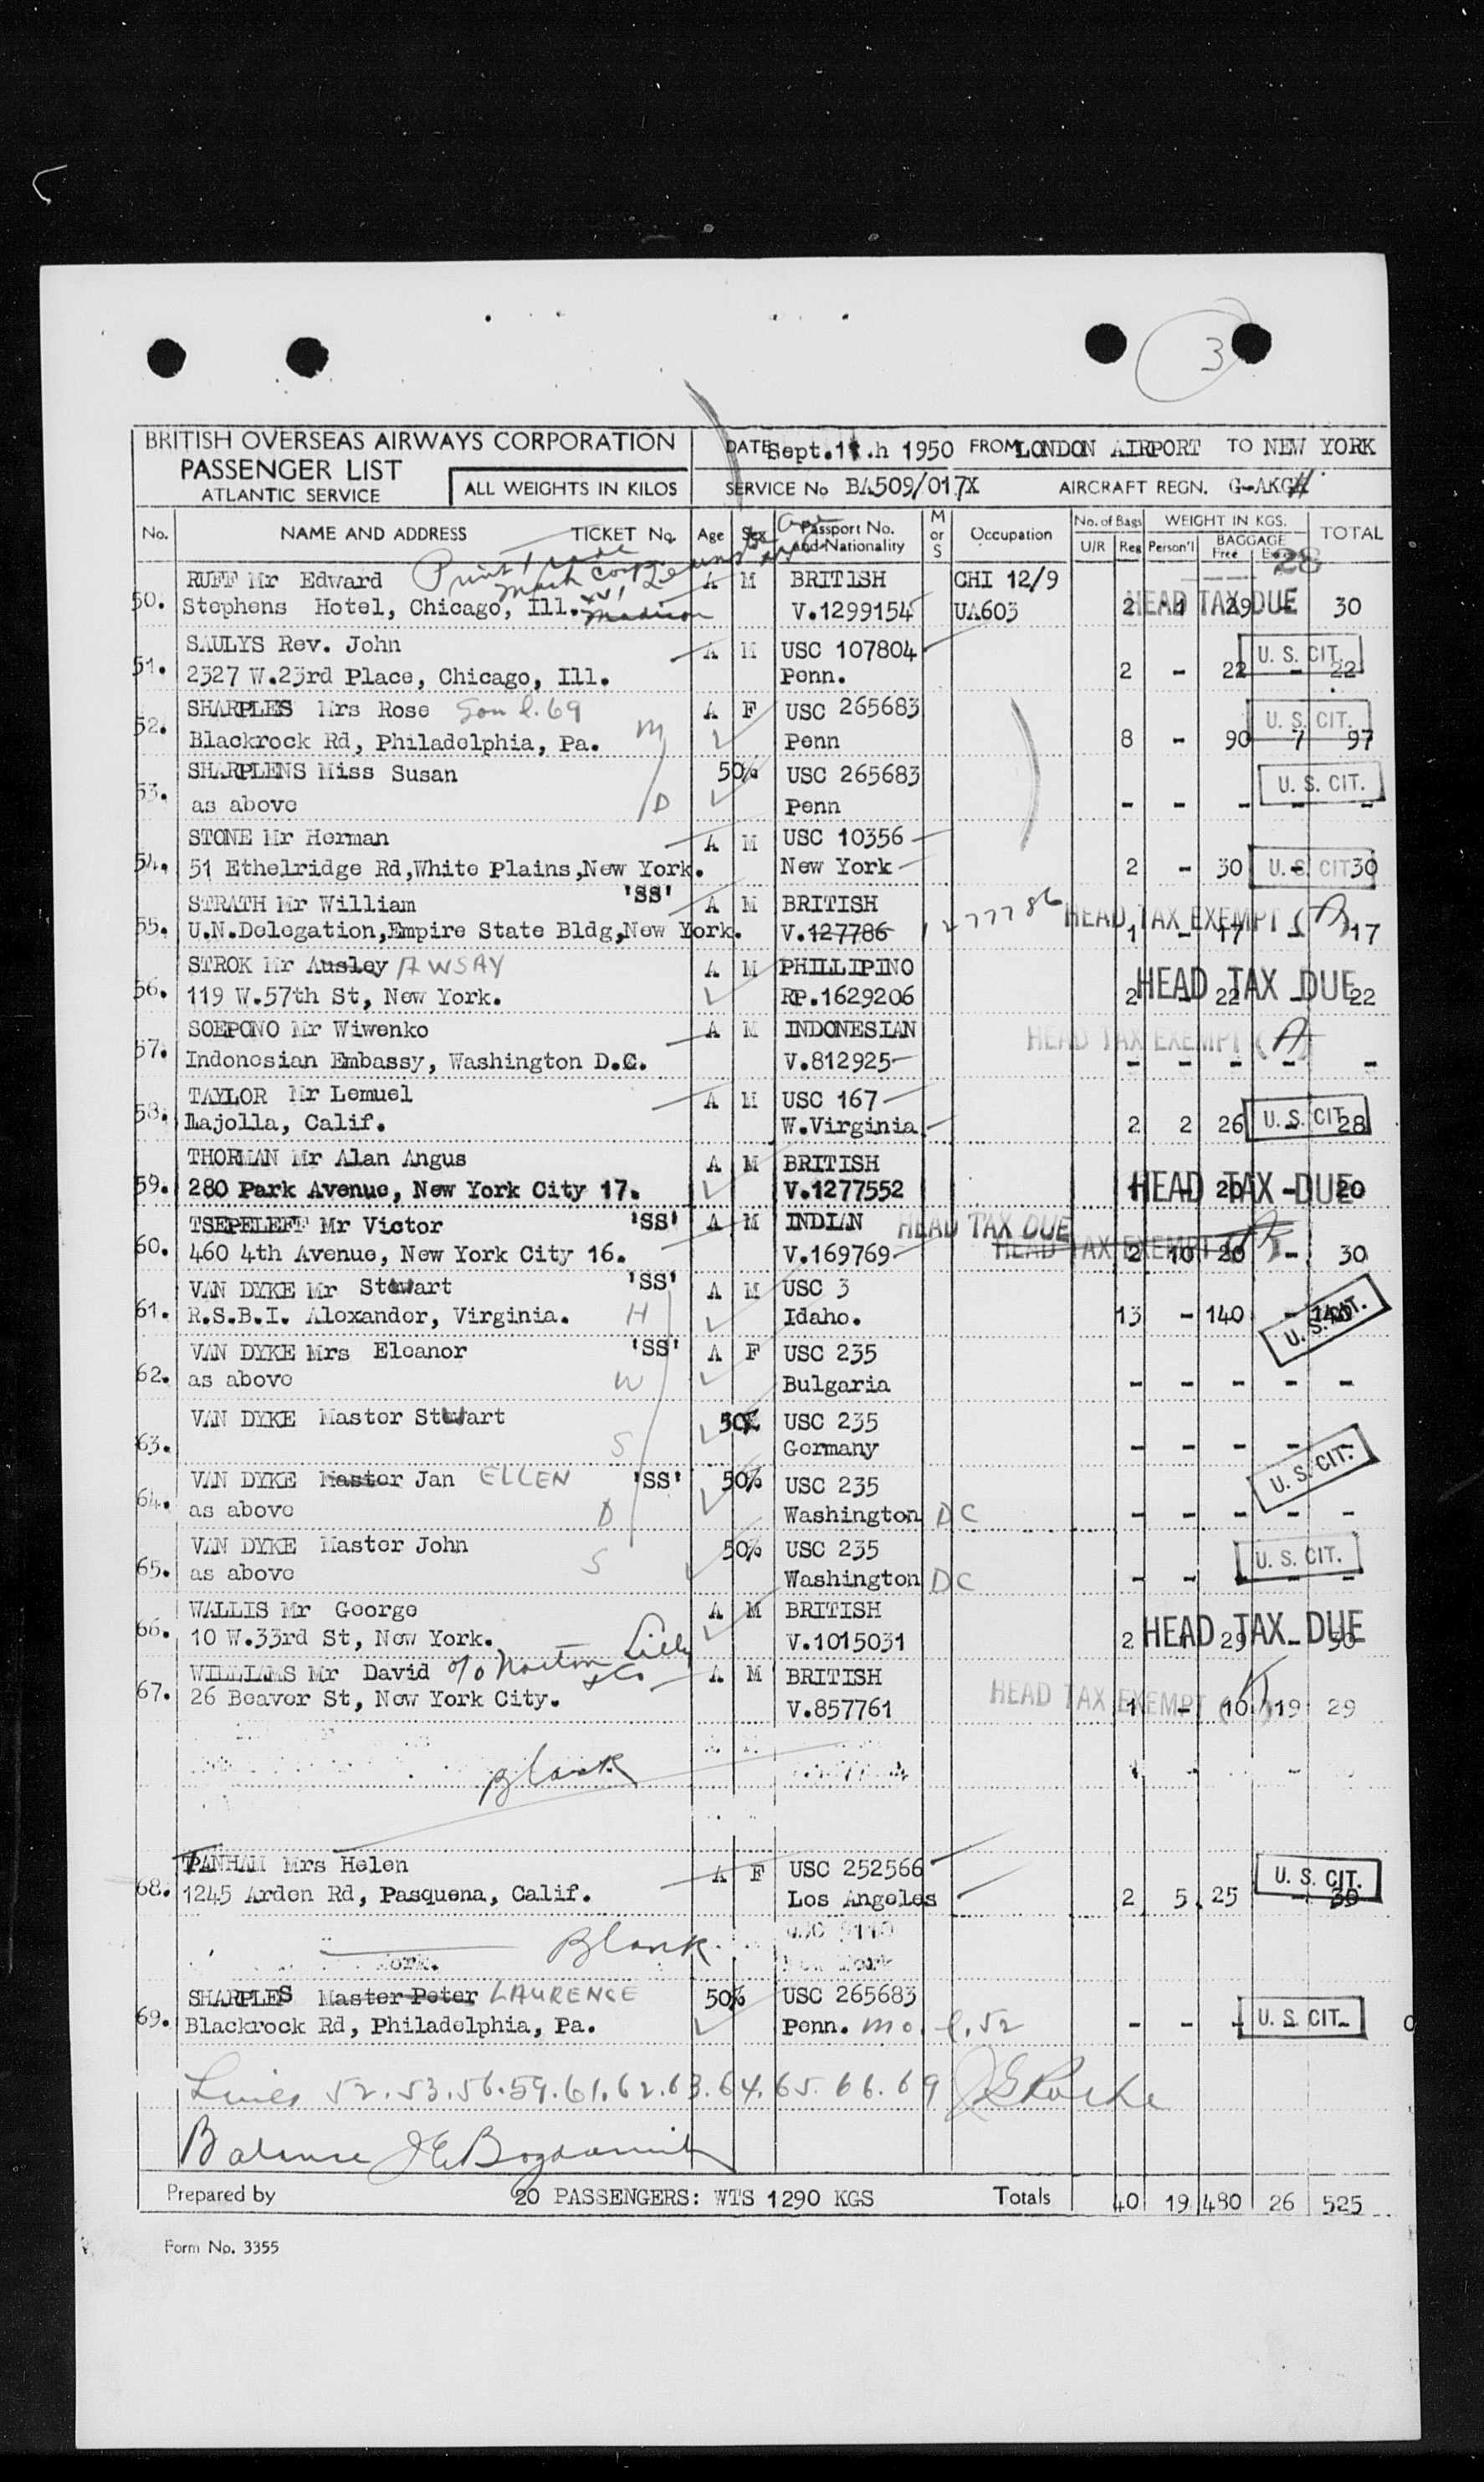 3
BRITISH OVERSEAS AIRWAYS CORPORATION
PASSENGER LIST
ATLANTIC SERVICE
ALL WEIGHTS IN KILOS
DATE Sept. 11.h 1950 FROM LONDON AIRPORT TO NEW YORK
SERVICE No BA509/017X AIRCRAFT REGN. G-AKGH
No. NAME AND ADDRESS TICKET No. Age Sex Passport No. and Nationality M or S Occupation No. of Bags U/R Reg WEIGHT IN KGS. Person'l BAGGAGE Free TOTAL
28
RUFF Mr Edward Print Trade A M BRITISH CHI 12/9 HEAD TAX DUE
50. Stephens Hotel, Chicago, Ill. Madison V.1299154 UA603 2 1 29 - 30
SAULYS Rev. John A M USC 107804 U. S. CIT.
51. 2327 W.23rd Place, Chicago, Ill. Penn. 2 - 22 - 22
SHARPLES Mrs Rose Son l.69 A F USC 265683 U. S. CIT.
52. Blackrock Rd, Philadelphia, Pa. M Penn 8 - 90 7 97
SHARPLENS Miss Susan 50% USC 265683 U. S. CIT.
53. as above D Penn - - - - -
STONE Mr Herman A M USC 10356
54. 51 Ethelridge Rd,White Plains,New York. New York 2 - 30 U. S. CIT 30
STRATH Mr William 'SS' A M BRITISH 1277786 HEAD TAX EXEMPT (A)
55. U.N.Delegation,Empire State Bldg,New York. V.127786 1 - 17 - 17
STROK Mr Ausley AWSAY A M PHILLIPINO HEAD TAX DUE
56. 119 W.57th St, New York. RP.1629206 2 - 22 - 22
SOEPONO Mr Wiwenko A M INDONESIAN HEAD TAX EXEMPT (A)
57. Indonesian Embassy, Washington D.C. V.812925 - - - - -
TAYLOR Mr Lemuel A M USC 167 U. S. CIT
58. Lajolla, Calif. W.Virginia 2 2 26 - 28
THORMAN Mr Alan Angus A M BRITISH HEAD TAX DUE
59. 280 Park Avenue, New York City 17. V.1277552 1 - 20 - 20
TSEPELEFF Mr Victor 'SS' A M INDIAN HEAD TAX DUE HEAD TAX EXEMPT
60. 460 4th Avenue, New York City 16. V.169769 2 10 20 - 30
VAN DYKE Mr Stewart 'SS' A M USC 3
61. R.S.B.I. Alexander, Virginia. H Idaho. 13 - 140 - 140 U. S. CIT.
VAN DYKE Mrs Eleanor 'SS' A F USC 235
62. as above W Bulgaria - - - - -
VAN DYKE Master Stewart 50% USC 235
63. S Germany - - - - -
VAN DYKE Master Jan ELLEN 'SS' 50% USC 235 U. S. CIT.
64. as above D Washington DC - - - - -
VAN DYKE Master John 50% USC 235 U. S. CIT.
65. as above S Washington DC - - - - -
WALLIS Mr George A M BRITISH HEAD TAX DUE
66. 10 W.33rd St, New York. V.1015031 2 1 29 - 30
WILLIAMS Mr David c/o Norton Lilly & Co A M BRITISH HEAD TAX EXEMPT
67. 26 Beaver St, New York City. V.857761 1 - 10 19 29
Blank
TANHAM Mrs Helen A F USC 252566 U. S. CIT.
68. 1245 Arden Rd, Pasquena, Calif. Los Angeles 2 5 25 - 30
Blank
SHARPLES Master Peter LAURENCE 50% USC 265683 U. S. CIT
69. Blackrock Rd, Philadelphia, Pa. Penn. Mo. l.52 - - - - 0
Lines 52.53.56.59.61.62.63.64.65.66.69
Balance
Prepared by 20 PASSENGERS: WTS 1290 KGS Totals 40 19 480 26 525
Form No. 3355